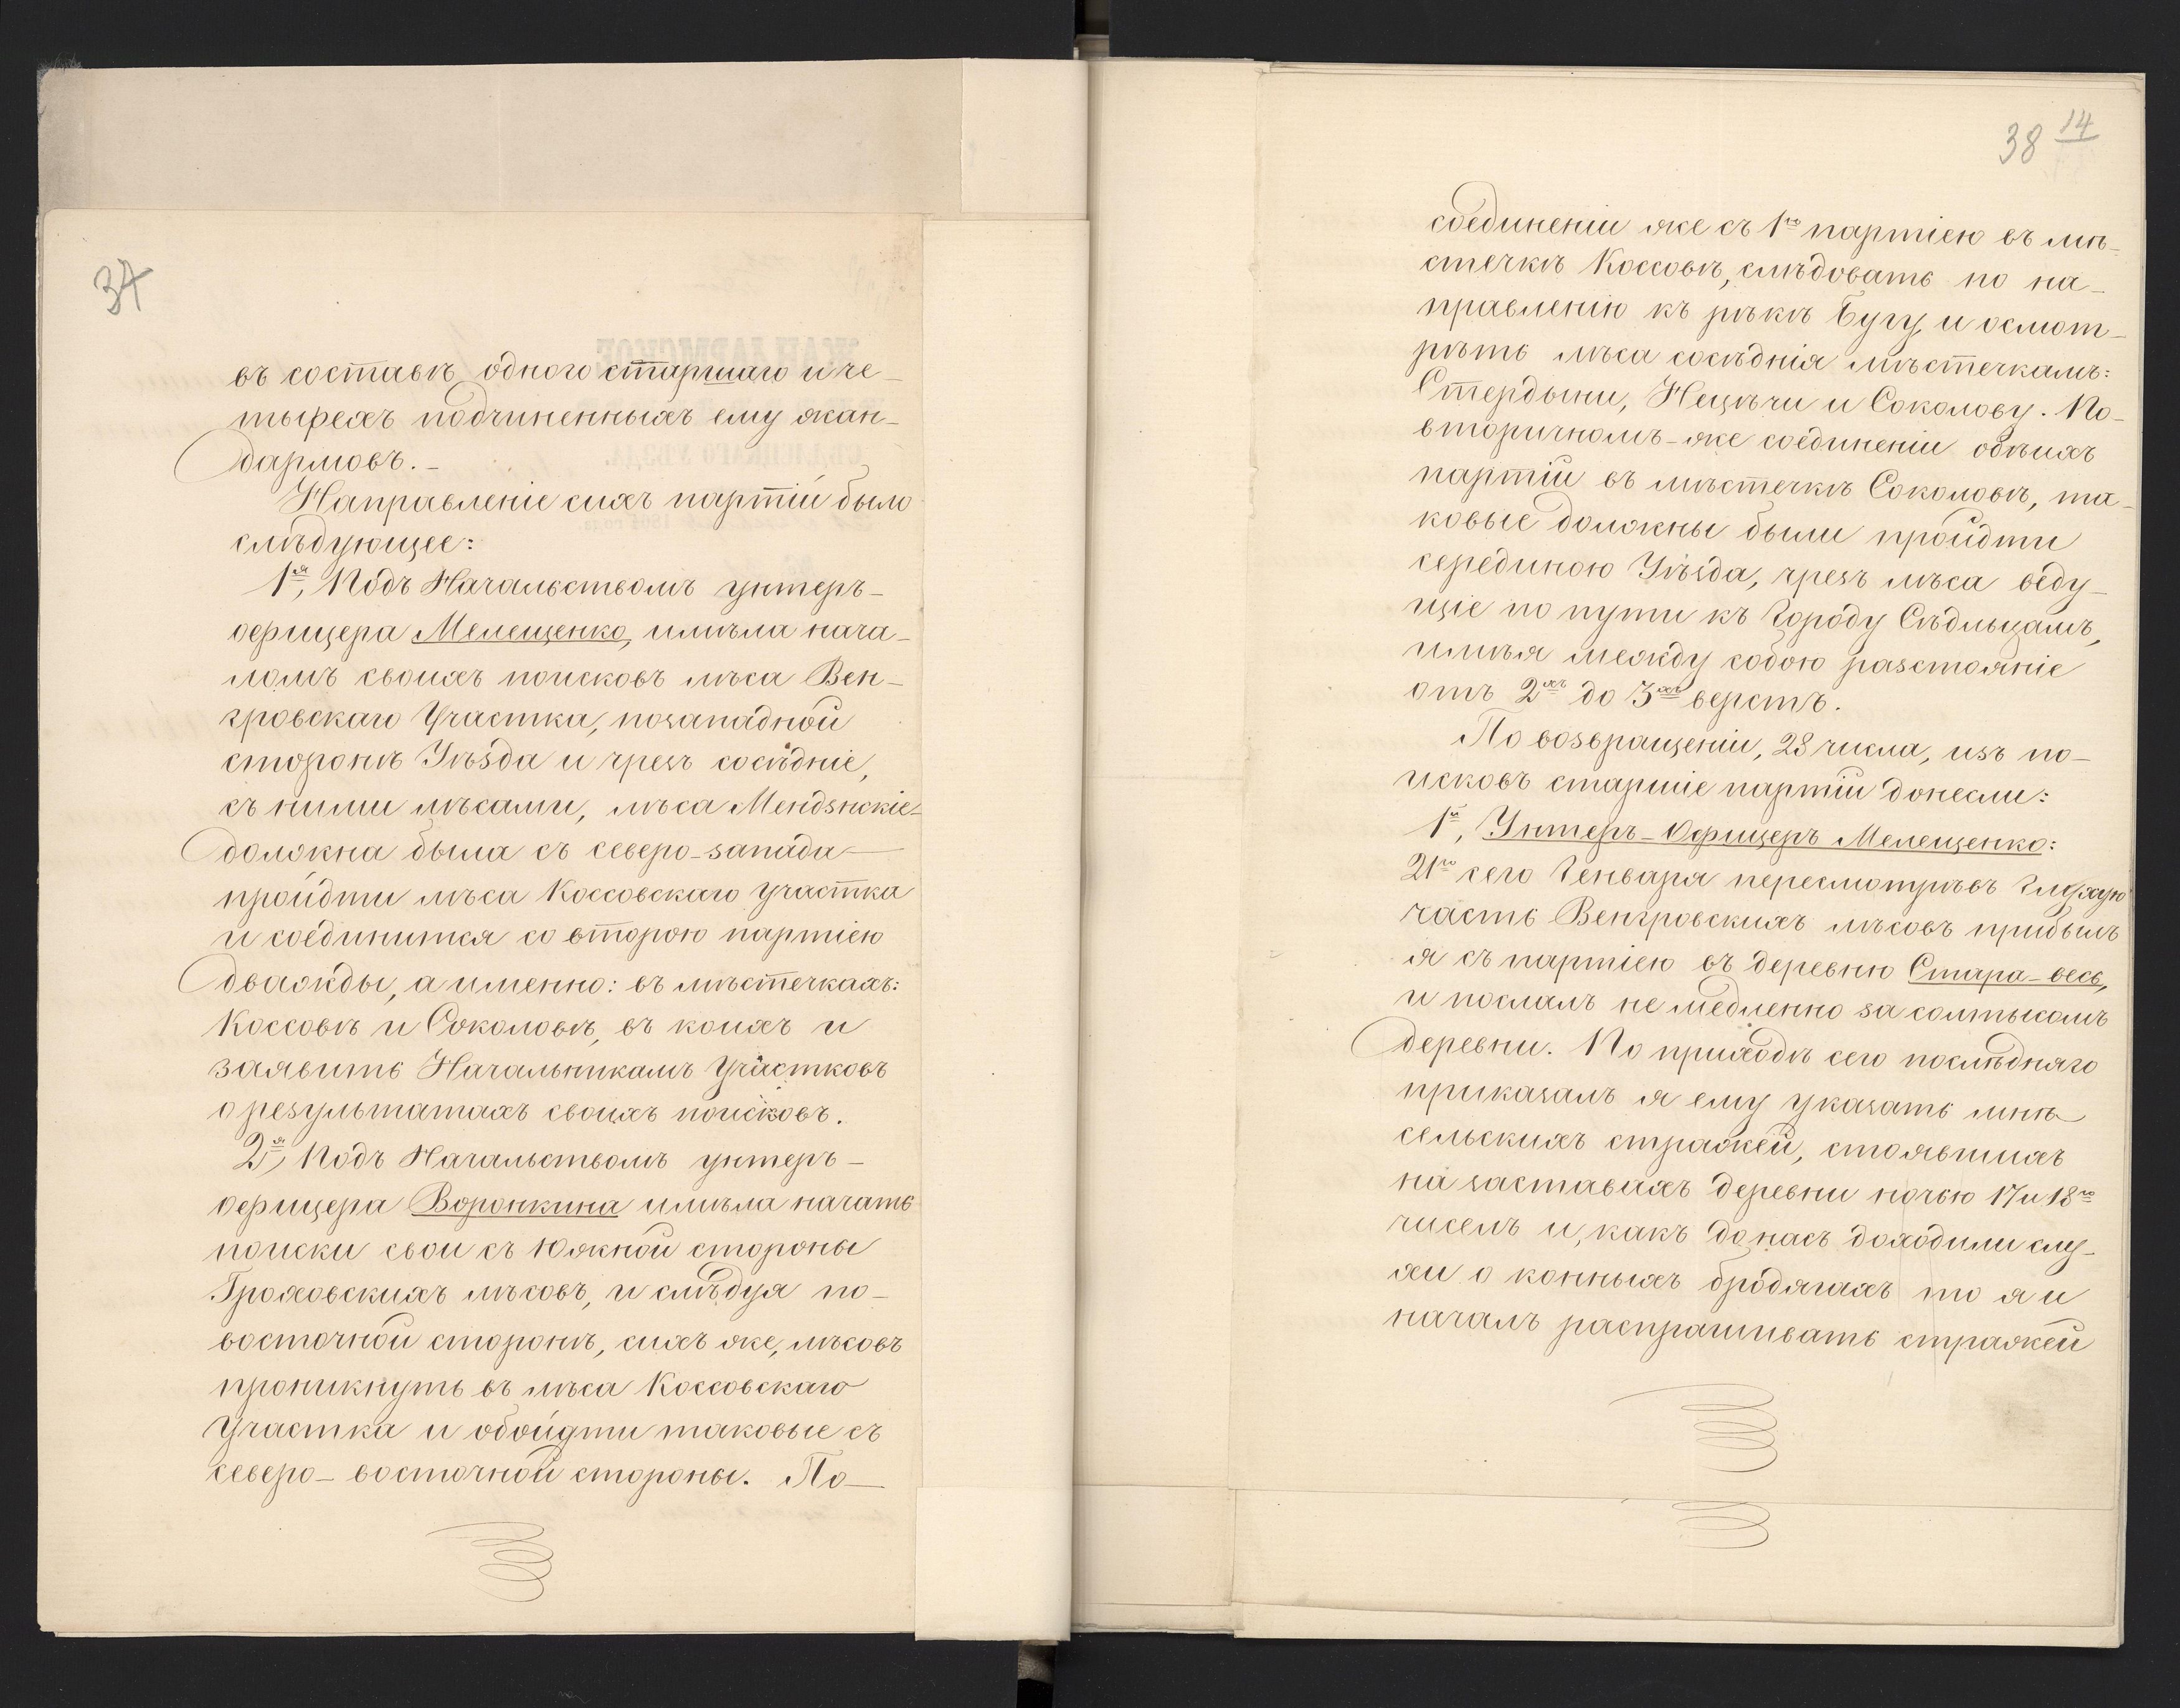 37
въ составѣ одного старшаго и че-
тырехъ подчиненныхъ ему жан-
дармовъ.-
Направленіе сихъ партій было
слѣдующее:
1я, Подъ Начальствомъ унтеръ-
офицера Мелещенко, имѣла нача-
ломъ своихъ поисковъ лѣса Вен-
гровскаго Участка, позападной
сторонѣ Уѣзда и чрезъ сосѣдніе,
съ ними лѣсами, лѣса Мендзнскіе-
должна была съ северо-запада
пройдти лѣса Коссовскаго участка
и соединится со второю партіею
дважды, а именно: въ мѣстечкахъ:
Коссовѣ и Соколовѣ, въ коихъ и
заявить Начальникамъ Участковъ
о результатахъ своихъ поисковъ.
2я, Подъ Начальствомъ унтеръ-
офицера Воронкина имѣла начать
поиски свои съ Южной стороны
Гроховскихъ лѣсовъ, и слѣдуя по-
восточной сторонѣ, сихъ же, лѣсовъ
проникнуть въ лѣса Коссовскаго
Участка и обойдти таковые съ
северо-восточной стороны. По-
38 14
соединеніи же съ 1ю партіею въ мѣ-
стечкѣ Коссовѣ, слѣдовать по на-
правленію къ рѣкѣ Бугу, и осмот-
рѣть лѣса сосѣднія мѣстечкамъ:
Стердыни, Нецѣчи и Соколову. По-
вторичномъ-же соединеніи обѣихъ
партій въ мѣстечкѣ Соколовѣ, та-
ковые должны были пройдти
серединою Уѣзда, чрезъ лѣса веду-
щіе по пути къ Городу Сѣдльцамъ,
имѣя между собою разстояніе
отъ 2хъ до 3хъ верстъ.
По возвращеніи, 28 числа, изъ по-
исковъ старшіе партій донесли:
1й, Унтеръ-Офицеръ Мелещенко:
21го сего Генваря пересмотрѣвъ Глухую
часть Венгровскихъ лѣсовъ прибылъ
я съ партіею въ деревню Стара-весь,
и послалъ не медленно за солтысомъ
деревни. По приходѣ сего послѣдняго
приказалъ я ему указать мнѣ
сельскихъ стражей, стоявшихъ
на заставахъ деревни ночью 17 и 18го
чиселъ и, какъ до насъ доходили слу-
хи о конныхъ бродягахъ то я и
началъ распрашивать стражей